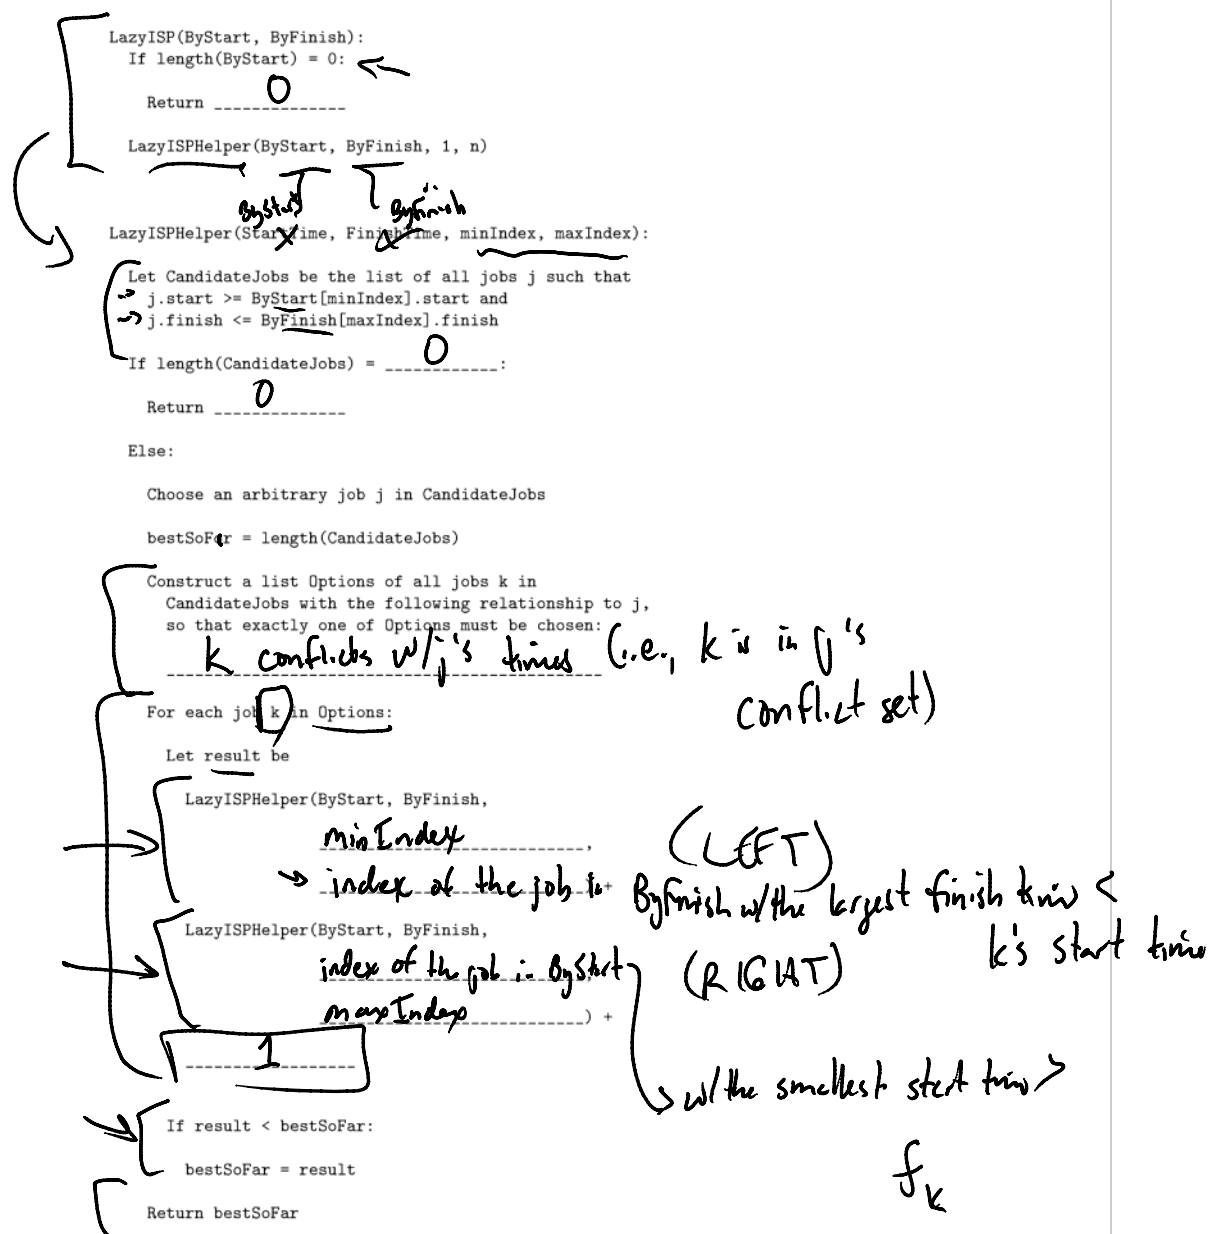 LazyISP(ByStart, ByFinish):
If length(ByStart) = 0:
0
Return ______________
LazyISPHelper(ByStart, ByFinish, 1, n)
ByStart ByFinish
LazyISPHelper(StartTime, FinishTime, minIndex, maxIndex):
Let CandidateJobs be the list of all jobs j such that
j.start >= ByStart[minIndex].start and
j.finish <= ByFinish[maxIndex].finish
0
If length(CandidateJobs) = ____________:
0
Return ______________
Else:
Choose an arbitrary job j in CandidateJobs
bestSoFar = length(CandidateJobs)
Construct a list Options of all jobs k in
CandidateJobs with the following relationship to j,
so that exactly one of Options must be chosen:
k conflicts w/j's times (i.e., k is in j's
conflict set)
For each job k in Options:
Let result be
LazyISPHelper(ByStart, ByFinish,
minIndex,
(LEFT)
index of the job in + ByFinish w/the largest finish time <
k's start time
LazyISPHelper(ByStart, ByFinish,
index of the job in ByStart
(RIGHT)
maxIndex) +
1
w/the smallest start time >
fk
If result < bestSoFar:
bestSoFar = result
Return bestSoFar